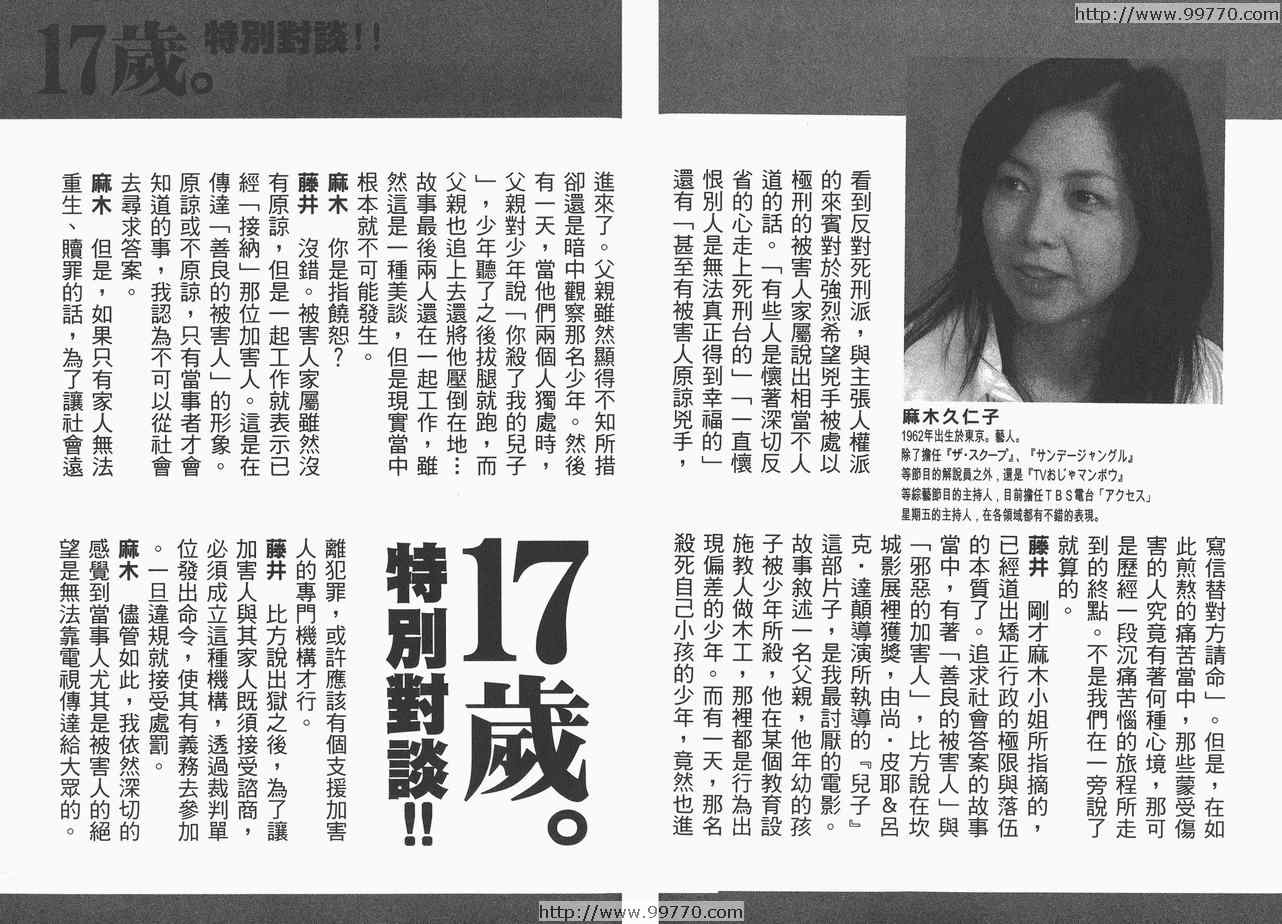 http://www.99770.com
看到反對死刑派，與主張人權派
的來賓對於強烈希望兇手被處以
極刑的被害人家屬說出相當不人
道的話。「有些人是懷著深切反
省的心走上死刑台的」「一直懷
恨別人是無法真正得到幸福的」
還有「甚至有被害人原諒兇手，
麻木久仁子
1962年出生於東京。藝人。
除了擔任『ザ・スクープ』、『サンデージャングル』
等節目的解說員之外，還是『TVおじゃマンボウ』
等綜藝節目的主持人，目前擔任ＴＢＳ電台「アクセス」
星期五的主持人，在各領域都有不錯的表現。
寫信替對方請命」。但是，在如
此煎熬的痛苦當中，那些蒙受傷
害的人究竟有著何種心境，那可
是歷經一段沉痛苦惱的旅程所走
到的終點。不是我們在一旁說了
就算的。
藤井　剛才麻木小姐所指摘的，
已經道出矯正行政的極限與落伍
的本質了。追求社會答案的故事
當中，有著「善良的被害人」與
「邪惡的加害人」，比方說在坎
城影展裡獲獎，由尚・皮耶＆呂
克・達顛導演所執導的『兒子』
這部片子，是我最討厭的電影。
故事敘述一名父親，他年幼的孩
子被少年所殺，他在某個教育設
施教人做木工，那裡都是行為出
現偏差的少年。而有一天，那名
殺死自己小孩的少年，竟然也進
17歲。特別對談!!
進來了。父親雖然顯得不知所措
卻還是暗中觀察那名少年。然後
有一天，當他們兩個人獨處時，
父親對少年說「你殺了我的兒子
」，少年聽了之後拔腿就跑，而
父親也追上去還將他壓倒在地…
故事最後兩人還在一起工作，雖
然這是一種美談，但是現實當中
根本就不可能發生。
麻木　你是指饒恕？
藤井　沒錯。被害人家屬雖然沒
有原諒，但是一起工作就表示已
經「接納」那位加害人。這是在
傳達「善良的被害人」的形象。
原諒或不原諒，只有當事者才會
知道的事，我認為不可以從社會
去尋求答案。
麻木　但是，如果只有家人無法
重生、贖罪的話，為了讓社會遠
17歲。
特別對談!!
離犯罪，或許應該有個支援加害
人的專門機構才行。
藤井　比方說出獄之後，為了讓
加害人與其家人既須接受諮商，
必須成立這種機構，透過裁判單
位發出命令，使其有義務去參加
。一旦違規就接受處罰。
麻木　儘管如此，我依然深切的
感覺到當事人尤其是被害人的絕
望是無法靠電視傳達給大眾的。
http://www.99770.com